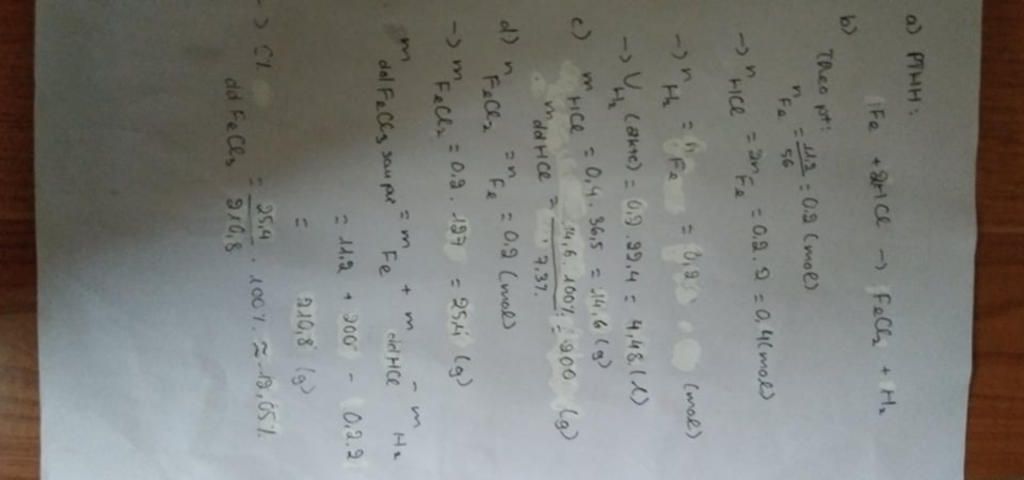 a) PTHH:
Fe + 2HCl -> FeCl2 + H2
b)
Theo pt:
n Fe = 11,2/56 = 0.2 (mol)
-> n HCl = 2n Fe = 0.2.2 = 0,4 (mol)
-> n H2 = n Fe = 0,2 (mol)
-> V H2 (đktc) = 0.2.22,4 = 4,48 (l)
c) m HCl = 0,4.36,5 = 14,6 (g)
m ddHCl = 14,6.100%/7,3% = 200 (g)
d) n FeCl2 = n Fe = 0.2 (mol)
-> m FeCl2 = 0.2.127 = 25,4 (g)
m ddFeCl3 sau pư = m Fe + m ddHCl - m H2
= 11,2 + 200 - 0.2.2
= 210,8 (g)
-> C% ddFeCl3 = 25,4/210,8 . 100% ≈ 12,05%